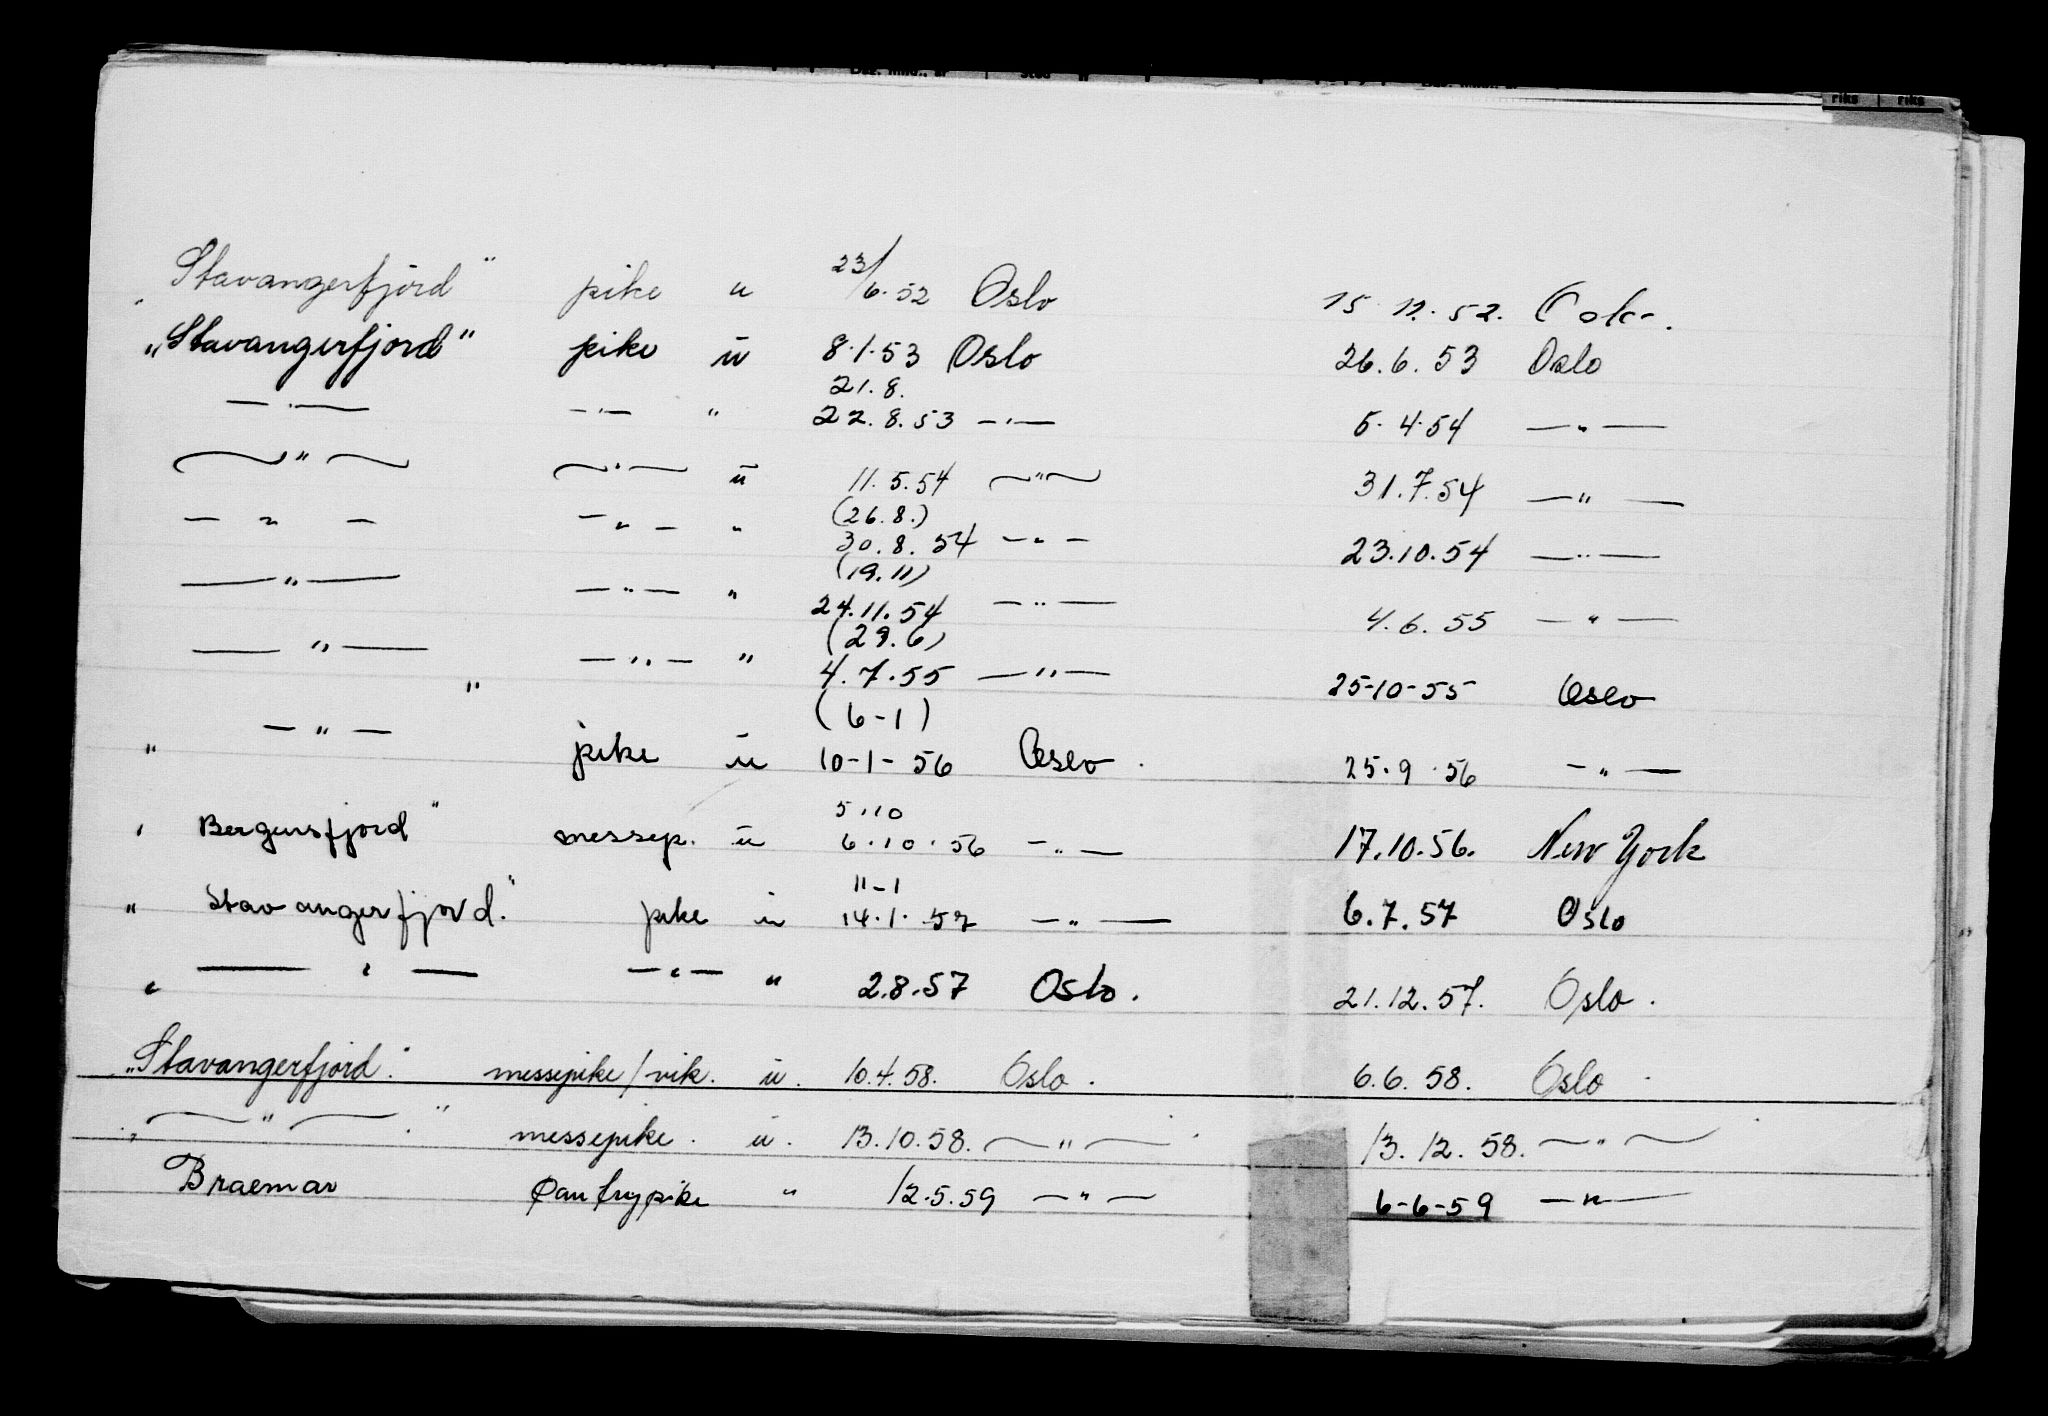 Stavangerfjord" pike u 23/6.52 Oslo 15.12.52. Oslo.
"Stavangerfjord" pike u 8.1.53 Oslo 26.6.53 Oslo
21.8.
— " — — " — " 22.8.53 — " — 5.4.54 — " —
— " — — " — u 11.5.54 — " — 31.7.54 — " —
(26.8.)
— " — — " — " 30.8.54 — " — 23.10.54 — " —
(19.11)
— " — — " — " 24.11.54 — " — 4.6.55 — " —
(29.6)
— " — — " — " 4.7.55 — " — 25-10-55 Oslo
(6-1)
" — " — " pike u 10-1-56 Oslo. 25.9.56 — " —
5.10
" Bergensfjord" messep. u 6.10.56 — " — 17.10.56. New York
11-1
" Stavangerfjord." pike u 14.1.57 — " — 6.7.57 Oslo
" — " — — " — " 2.8.57 Oslo. 21.12.57. Oslo.
"Stavangerfjord". messepike/vik. u. 10.4.58. Oslo. 6.6.58. Oslo.
" — " — " messepike. u. 13.10.58. — " — 13.12.58. — " —
Braemar pike " 12.5.59 — " — 6-6-59 — " —
riks riks